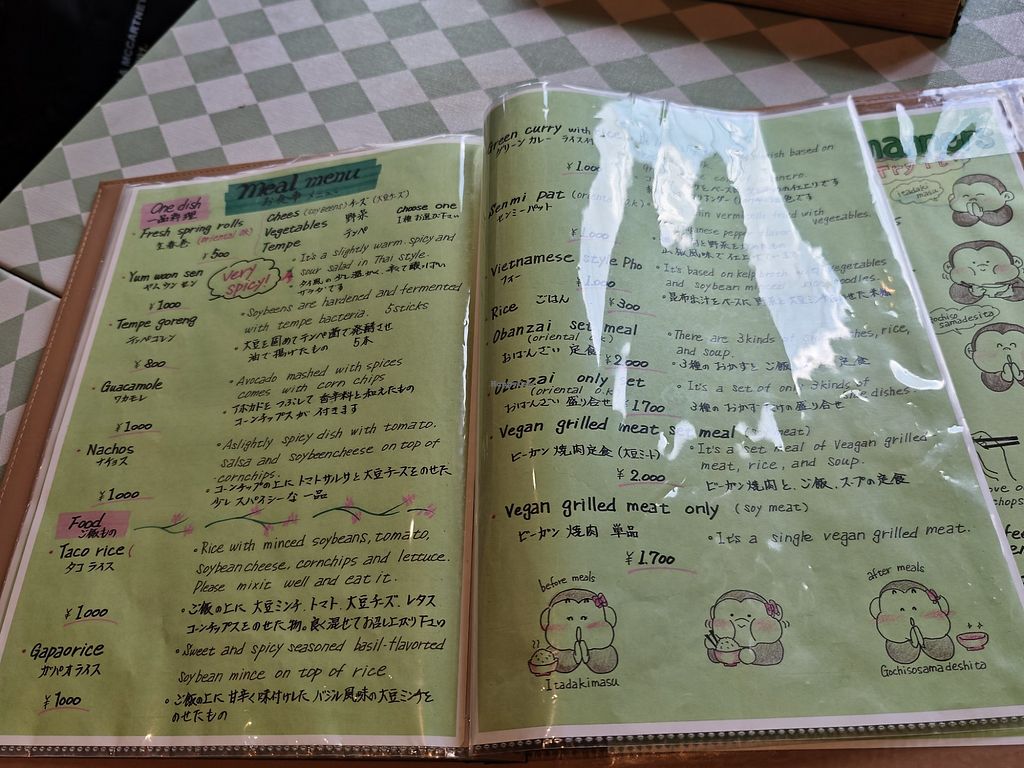 meal menu
お食事メニュー
One dish
一品料理
Fresh spring rolls
生春巻 (oriental ok)
¥500
Chees (soybeens) チーズ (大豆チーズ)
Vegetables 野菜
Tempe テンペ
choose one
1種お選び下さい
Yum woon sen
ヤムウンセン
very spicy!
¥1000
It's a slightly warm, spicy and
sour salad in Thai style.
Tempe goreng
テンペゴレン
¥800
Soybeens are hardened and fermented
with tempe bacteria. 5sticks
大豆を固めてテンペ菌で発酵させ
油で揚げたもの 5本
Guacamole
ワカモレ
¥1000
Avocado mashed with spices
comes with corn chips
アボカドをつぶして香辛料と和えたもの
コーンチップスが付きます
Nachos
ナチョス
¥1000
Aslightly spicy dish with tomato.
salsa and soybeencheese on top of
cornchips.
コーンチップの上にトマトサルサと大豆チーズをのせた
少しスパイシーな一品
Food
ご飯もの
Taco rice (
タコライス
¥1000
Rice with minced soybeans, tomato,
soybean cheese, cornchips and lettuce.
Please mix it well and eat it.
ご飯の上に 大豆ミンチ、トマト、大豆チーズ、レタス
コーンチップスをのせた物。良く混ぜてお召し上がり下さい
Gapaorice
ガパオライス
¥1000
Sweet and spicy seasoned basil-flavored
Soybean mince on top of rice
ご飯の上に 甘辛く味付けした バジル風味の大豆ミンチを
のせたもの
Green curry with rice
グリーンカレー ライス
¥1.000
dish based on
Senmi pat (oriental o.k)
センミーパット
¥1.000
vermicelli fried with
vegetables.
Vietnamese style Pho
フォー
¥1.000
It's based on kelp broth with vegetables
and soybean minced noodles.
昆布出汁をベースに 野菜と大豆
Rice ごはん ¥300
Obanzai set meal
(oriental o.k)
おばんざい 定食 ¥2.000
There are 3kinds of dishes, rice,
and soup.
3種の おかずと ご飯 定食
Obanzai only set
(oriental o.k)
おばんざい 盛り合せ ¥1.700
It's a set of only 3kinds of
side dishes
3種の おかずだけの 盛り合せ
Vegan grilled meat set meal (soy meat)
ビーガン 焼肉定食 (大豆ミート)
¥2.000
It's a set meal of Veagan grilled
meat, rice, and soup.
ビーガン焼肉と、ご飯、スープの定食
Vegan grilled meat only (soy meat)
ビーガン 焼肉 単品
¥1.700
It's a single vegan grilled meat.
before meals
Itadakimasu
after meals
Gochisosamadeshita
manners
Itadaki
masu
samadeshita